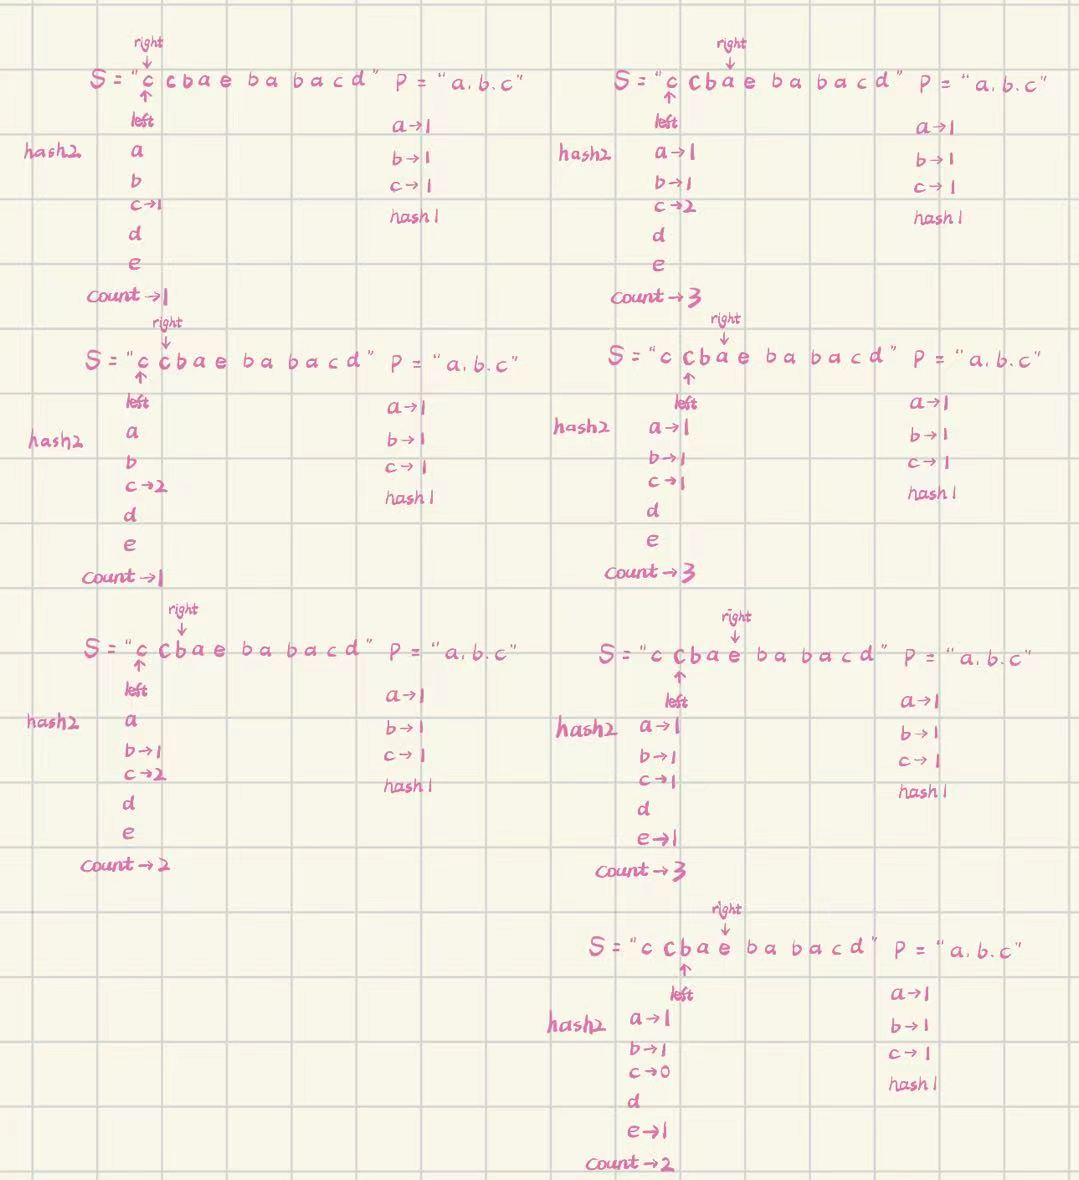 right
↓
S = "c c b a e b a b a c d" P = "a.b.c"
↑
left
a→1
hash2 a
b→1
b
c→1
c→1
hash1
d
e
count→1
right
↓
S = "c c b a e b a b a c d" P = "a.b.c"
↑
left
a→1
hash2 a
b→1
b
c→1
c→2
hash1
d
e
count→1
right
↓
S = "c c b a e b a b a c d" P = "a.b.c"
↑
left
a→1
hash2 a
b→1
b→1
c→1
c→2
hash1
d
e
count→2
right
↓
S = "c c b a e b a b a c d" P = "a.b.c"
↑
left
a→1
hash2 a→1
b→1
b→1
c→1
c→2
hash1
d
e
count→3
right
↓
S = "c c b a e b a b a c d" P = "a.b.c"
↑
left
a→1
hash2 a→1
b→1
b→1
c→1
c→1
hash1
d
e
count→3
right
↓
S = "c c b a e b a b a c d" P = "a.b.c"
↑
left
a→1
hash2 a→1
b→1
b→1
c→1
c→1
hash1
d
e→1
count→3
right
↓
S = "c c b a e b a b a c d" P = "a.b.c"
↑
left
a→1
hash2 a→1
b→1
b→1
c→1
c→0
hash1
d
e→1
count→2